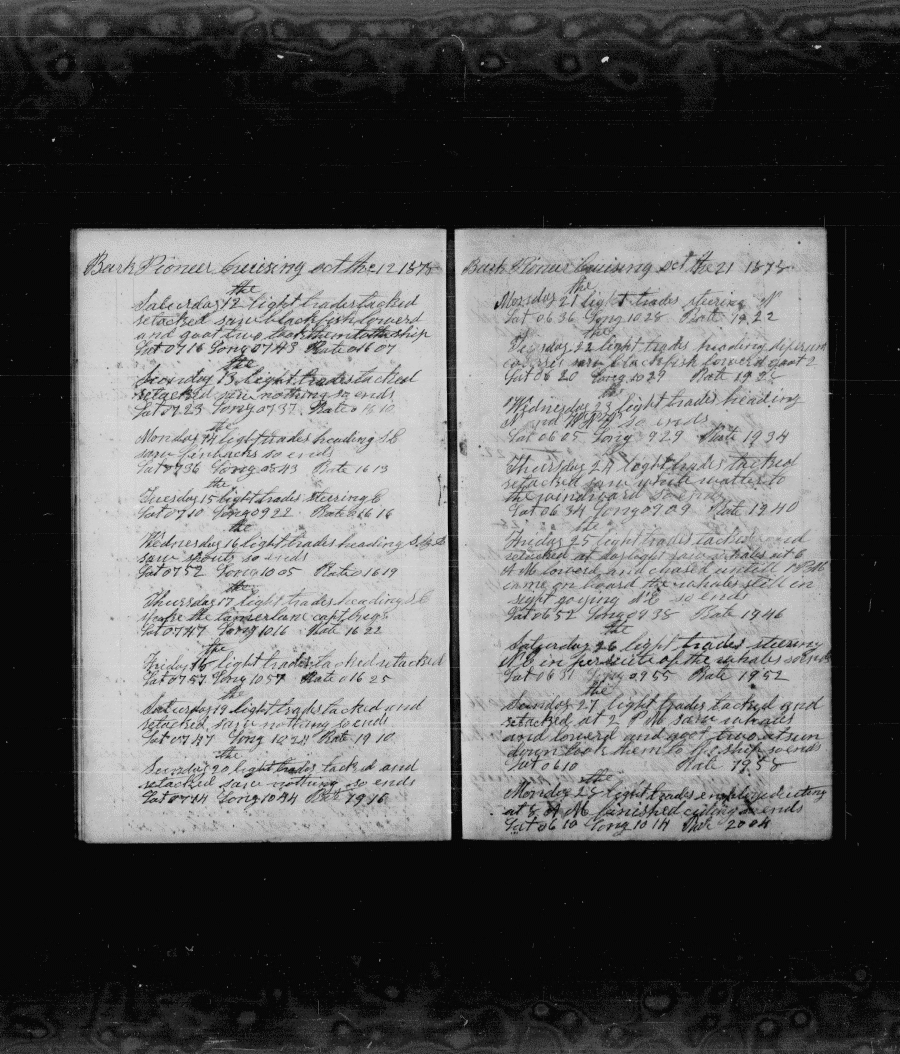 Bark Pioneer Cruising oct the 12 1878
the
Saturday 12 light trades tacked
retacked saw blackfish loward
and goat two took them to the ship
Lat 0716 Long 0743 Rate 01607
the
Soonday 13 light trades tacked
retacked saw nothing so ends
Lat 0723 Long 0737 Rate 1610
the
Monday 14 light trades heading SE
saw finbacks so ends
Lat 0736 Long 0843 Rate 1613
the
Tuesday 15 light trades steering E
Lat 0710 Long 0922 Rate 1616
the
Wednesday 16 light trades heading
saw spouts so ends
Lat 0752 Long 1005 Rate 01619
the
Thursday 17 light trades heading SE
spoke the tamerlane capt
Lat 0747 Long 1016 Rate 1622
the
Friday 18 light trades tacked retacked
Lat 0757 Long 1057 Rate 01625
the
Saturday 19 light trades tacked and
retacked saw nothing so ends
Lat 0747 Long 1024 Rate 1910
the
Sunday 20 light trades tacked and
retacked saw nothing so ends
Lat 0714 Long 1044 Rate 1916
Bark Pioneer Cruising oct the 21 1878
the
Monday 21 light trades steering W
Lat 0636 Long 1028 Rate 1922
the
Tuesday 22 light trades heading
saw blackfish loward goat 2
Lat 0620 Long 1029 Rate 1928
the
Wednesday 23 light trades heading
N and so ends
Lat 0605 Long 0929 Rate 1934
Thursday 24 light trades tacked
retacked saw white watter to
the windward so ends
Lat 0634 Long 0909 Rate 1940
the
Friday 25 light trades tacked and
retacked at daylight saw whales at 6
AM loward and chased untill 1 PM
came on board the whales still in
sight goying NE so ends
Lat 0652 Long 0938 Rate 1946
the
Saturday 26 light trades steering
NE in persuite of the whales so ends
Lat 0631 Long 0955 Rate 1952
the
Sunday 27 light trades tacked and
retacked at 2 PM saw whales
and lowerd and goot two at sun
down took them to the ship so ends
Lat 0610 Rate 1958
the
Monday 28 light trades employed cuting
at 8 AM finished cuting so ends
Lat 0610 Long 1014 Rate 2004